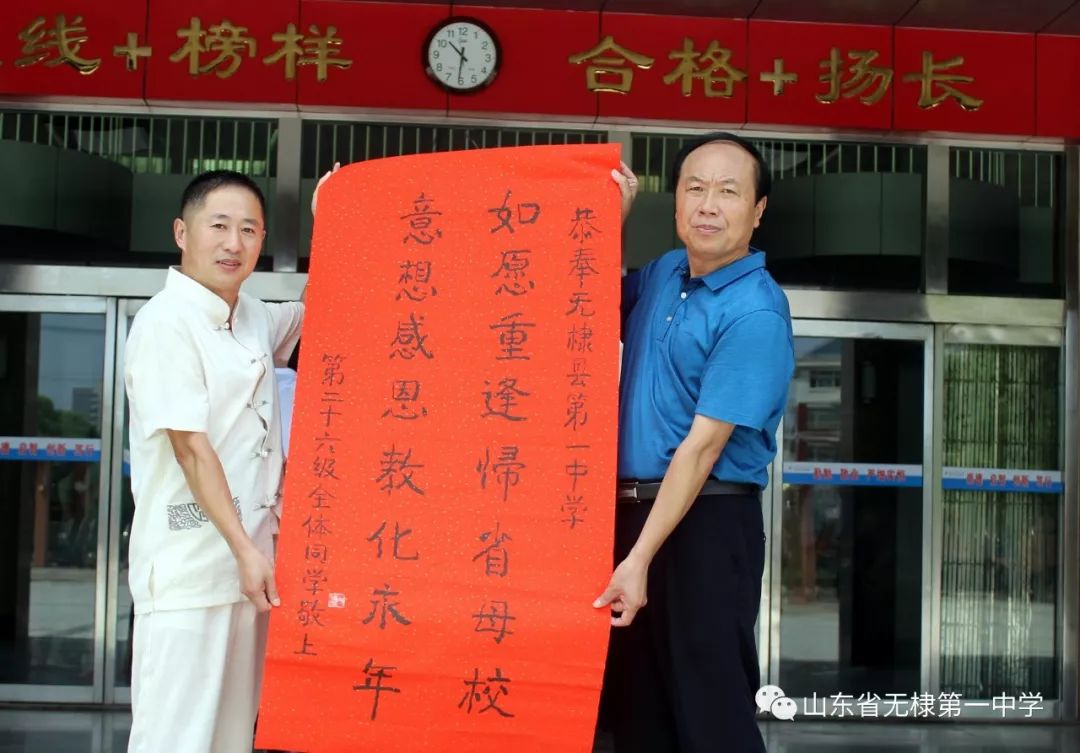 线+榜样 合格+扬长
恭奉无棣县第一中学
如愿重逢歸省母校
意想感恩教化永年
第二十六级全体同学敬上
山东省无棣第一中学